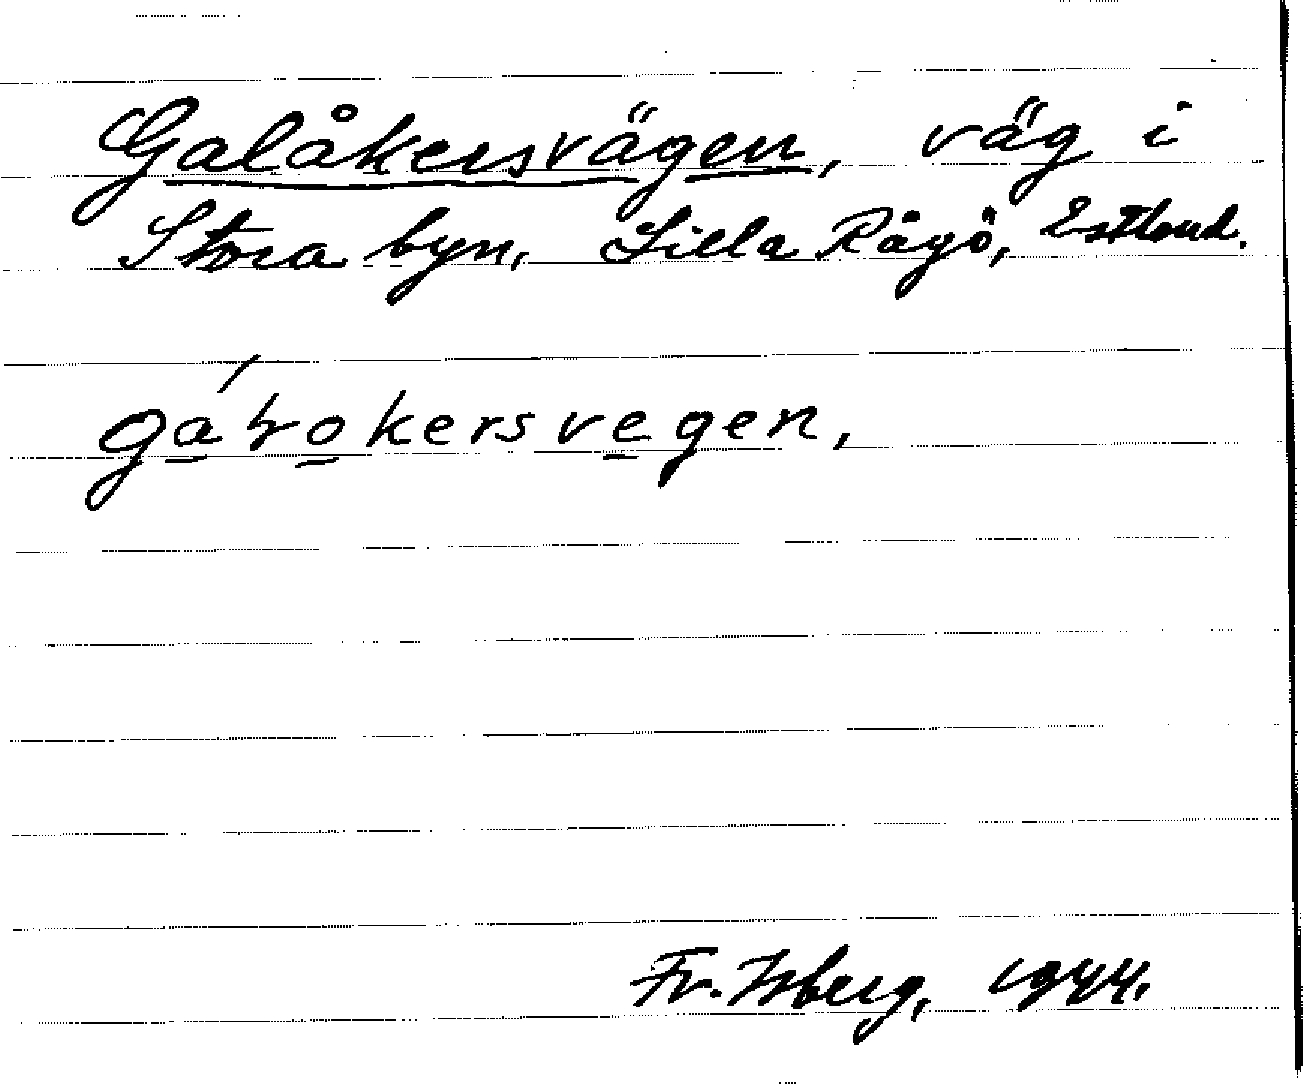 Galåkersvägen, väg i
Stora byn, Lilla Rågö, Estland.
gáɽokersvegen,
Fr. Isberg, 1944.